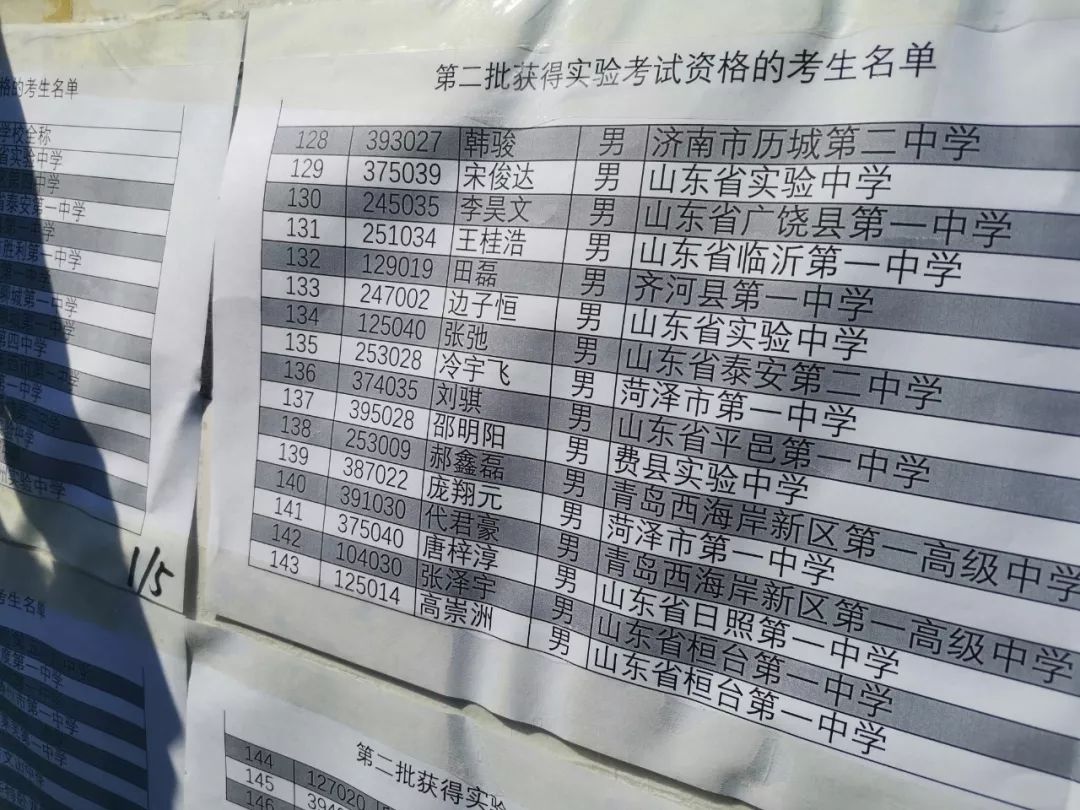 格的考生名单
学校全称
省实验中学
泰安第一中学
胜利第一中学
聊城第一中学
第四中学
1/5
第二批获得实验考试资格的考生名单
128 393027 韩骏 男 济南市历城第二中学
129 375039 宋俊达 男 山东省实验中学
130 245035 李昊文 男 山东省广饶县第一中学
131 251034 王桂浩 男 山东省临沂第一中学
132 129019 田磊 男 齐河县第一中学
133 247002 边子恒 男 山东省实验中学
134 125040 张弛 男 山东省泰安第二中学
135 253028 冷宇飞 男 菏泽市第一中学
136 374035 刘骐 男 山东省平邑第一中学
137 395028 邵明阳 男 费县实验中学
138 253009 郝鑫磊 男 青岛西海岸新区第一高级中学
139 387022 庞翔元 男 菏泽市第一中学
140 391030 代君豪 男 青岛西海岸新区第一高级中学
141 375040 唐梓淳 男 山东省日照第一中学
142 104030 张泽宇 男 山东省桓台第一中学
143 125014 高崇洲 男 山东省桓台第一中学
考生名单
第二批获得实验
144 127020
145
146